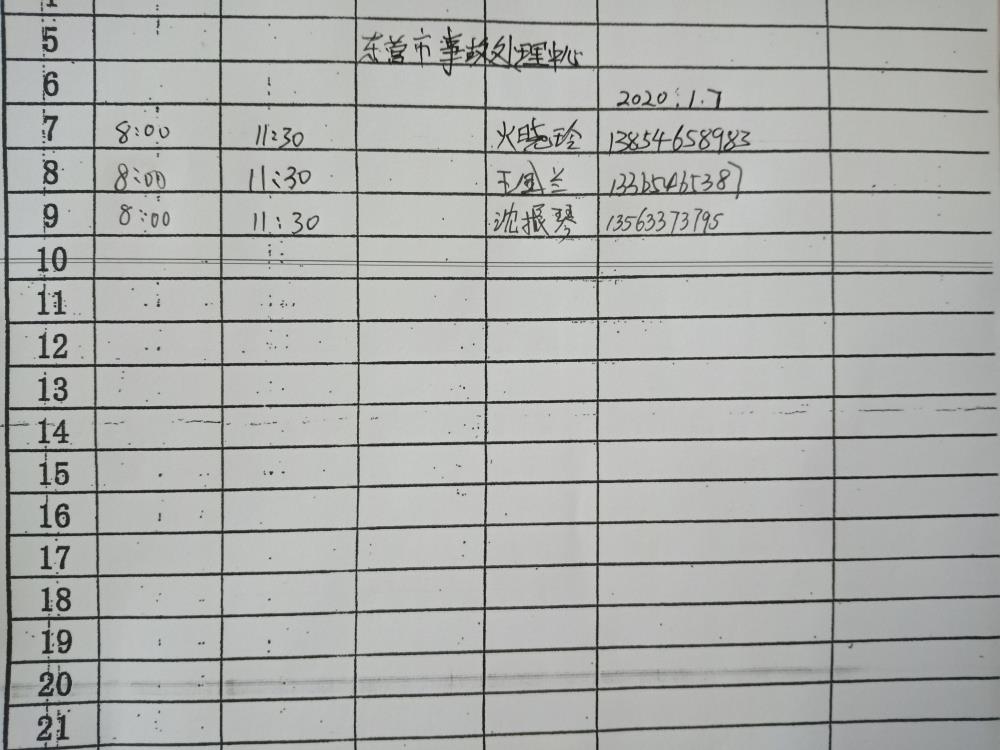 5 东营市事故处理中心
6 2020.1.7
7 8:00 11:30 火晓玲 13854658983
8 8:00 11:30 王国兰 13365465387
9 8:00 11:30 沈振琴 13563373795
10
11
12
13
14
15
16
17
18
19
20
21